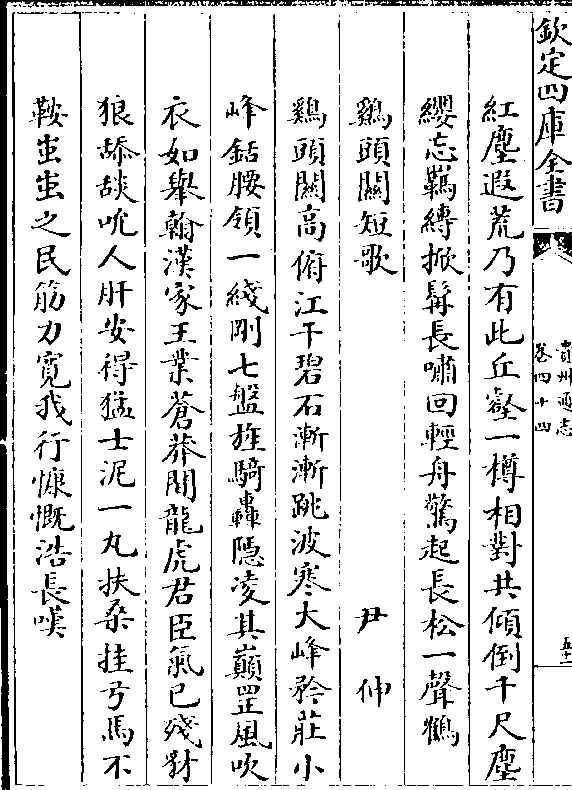 欽定四庫全書
貴州通志
卷四十四
五十一
紅塵遐荒乃有此丘壑一樽相對共傾倒千尺塵
纓忘羈縛掀髯長嘯回輕舟驚起長松一聲鶴
鷄頭關短歌 尹伸
鷄頭關高俯江干碧石漸漸跳波寒大峰矜莊小
峰銛腰領一綫剛七盤旌騎轟隱凌其巔罡風吹
衣如舉翰漢家王業蒼莽間龍虎君臣氣已殘豺
狼舔舕吮人肝安得猛士泥一丸扶桑挂弓馬不
鞍蚩蚩之民筋力寛我行慷慨浩長嘆